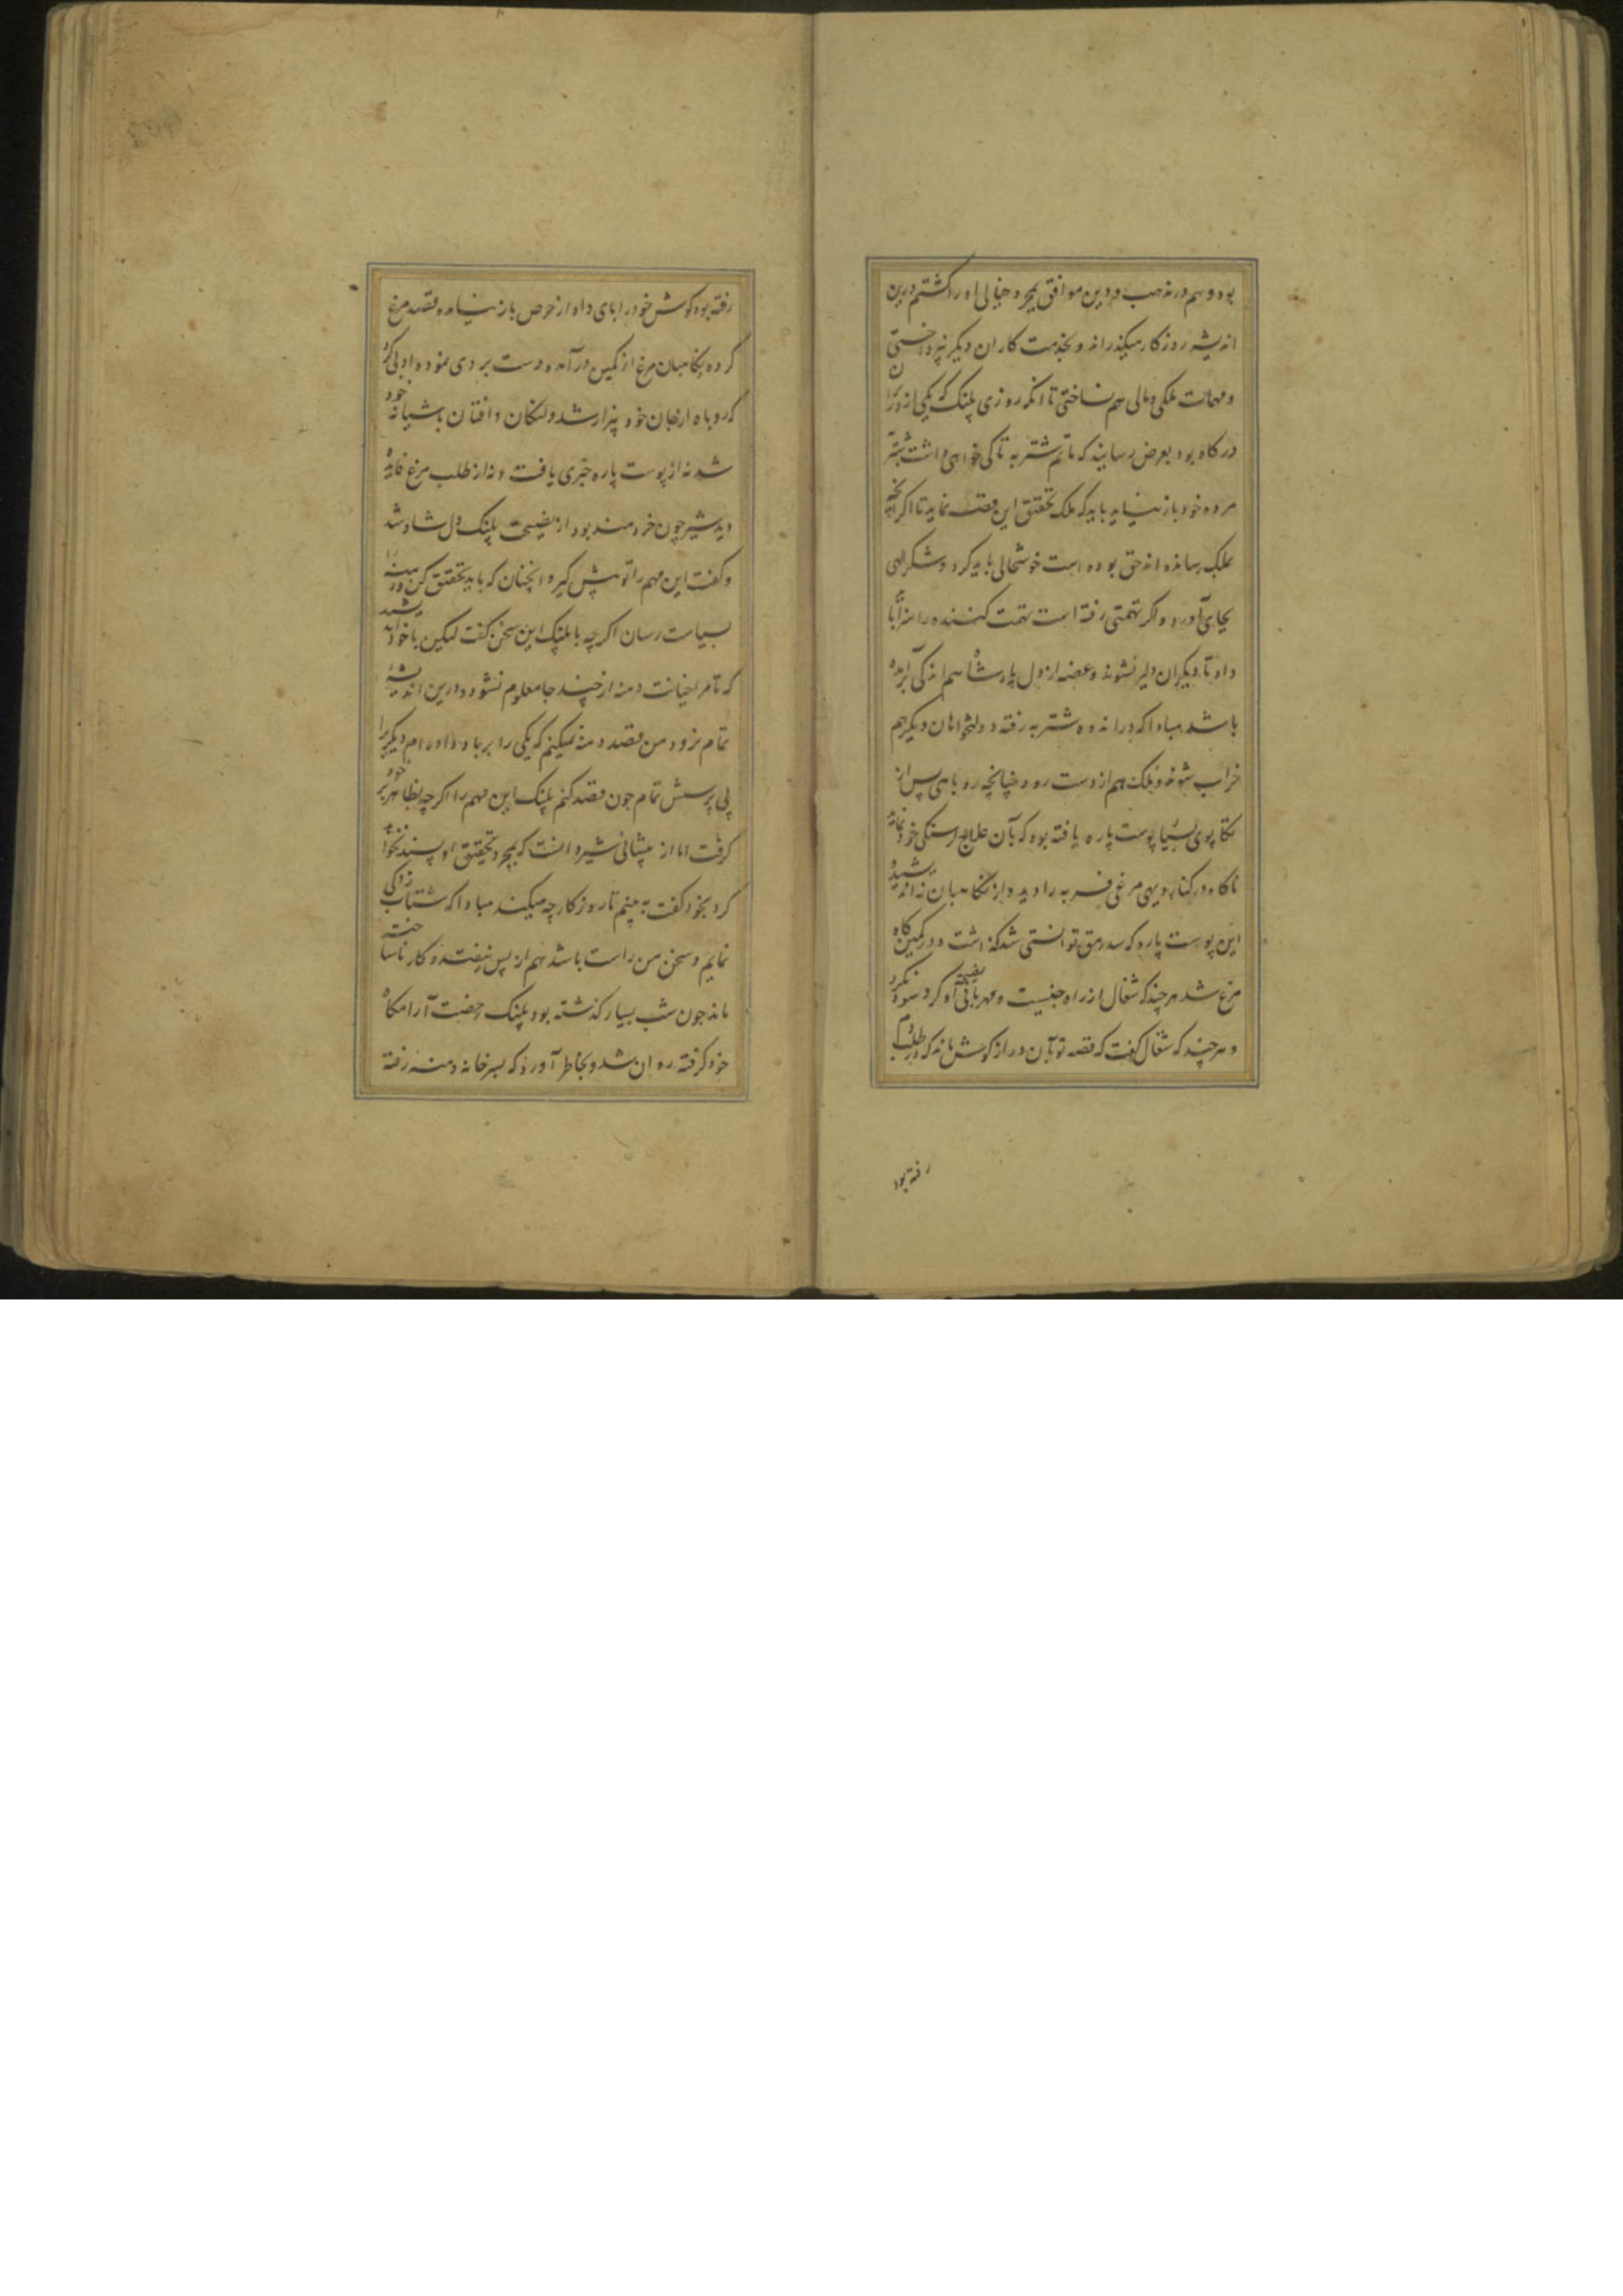 بود و هم در مذهب و دین موافق بمجرد خیالی او را کشتم درین
اندیشه روزکار میکذراند و بخدمت کاران دیکر نپرداختی
و مهمات ملکی و مالی هم نساختی تا انکه روزی پلنک که یکی از وزیران
درکاه بود بعرض رسانید که ماتم شتربه تا کی خواهی داشت شتربه
مرده خود باز نیاید باید که ملک تحقیق این قصه نماید تا اکر انچه
بملک رسانده اند حق بوده است خوشحالی باید کرد و شکر الهی
بجای آورد و اکر تهمتی رفته است تهمت کننده را سزا باید
داد تا دیکران دلیر نشوند و غصه از دل پادشاه هم اندکی برآمده
باشد مبادا که در اندوه شتربه رفته دولتخواهان دیکر هم
خراب شوند و ملک هم از دست رود چنانچه روباهی پس از
تکاپوی بسیار پوست پاره یافته بود که بآن علاج کرسنکی خود نماید
ناکاه در کنار دیهی مرغی فربه را دید و از نکاهبان نه اندیشید
این پوست پاره که سدرمق توانستی شد کذاشت و در کمین کاه
مرغ شد هر چند که شغال از راه جنسیت و مهربانی نصیحت او کرد سود نکرد
و هر چند که شغال کفت که قصه تو بآن دراز کوش ماند که در طلب دم
رفته بود
رفته بود کوش خود را بای داد از حرص باز نیامده قصد مرغ
کرده نکاهبان مرغ از کمین درآمده دست بردی نموده ادبی کرد
که روباه از جان خود بیزار شد و لنکان و افتان بآشیانه خود
شد نه از پوست پاره خبری یافت و نه از طلب مرغ فایده
دید شیر چون خردمند بود از نصیحت پلنک دل شاد شد
و کفت این مهم را تو پیش کیر و انچنان که باید تحقیق کن و دمنه را
بسیاست رسان اکرچه با پلنک این سخن کفت لیکن با خود اندیشید
که تا مرا خیانت دمنه از چند جا معلوم نشود و درین اندیشه
تمام نرود من قصد دمنه نمیکنم که یکی را برباد داده ام دیکری را
بی پرسش تمام چون قصد کنم پلنک این مهم را اکرچه بظاهر بر خود
کرفت اما از پیشانی شیر دانست که بمجرد تحقیق او پسند نخواهد
کرد بخود کفت به بینم تا روزکار چه میکند مبادا که شتاب زدکی
نمایم و سخن من راست باشد هم از پس نیفتد و کار ناساخته
ماند چون شب بسیار کذشته بود پلنک رخصت آرامکاه
خود کرفته روان شد و بخاطر آورد که بسر خانه دمنه رفته